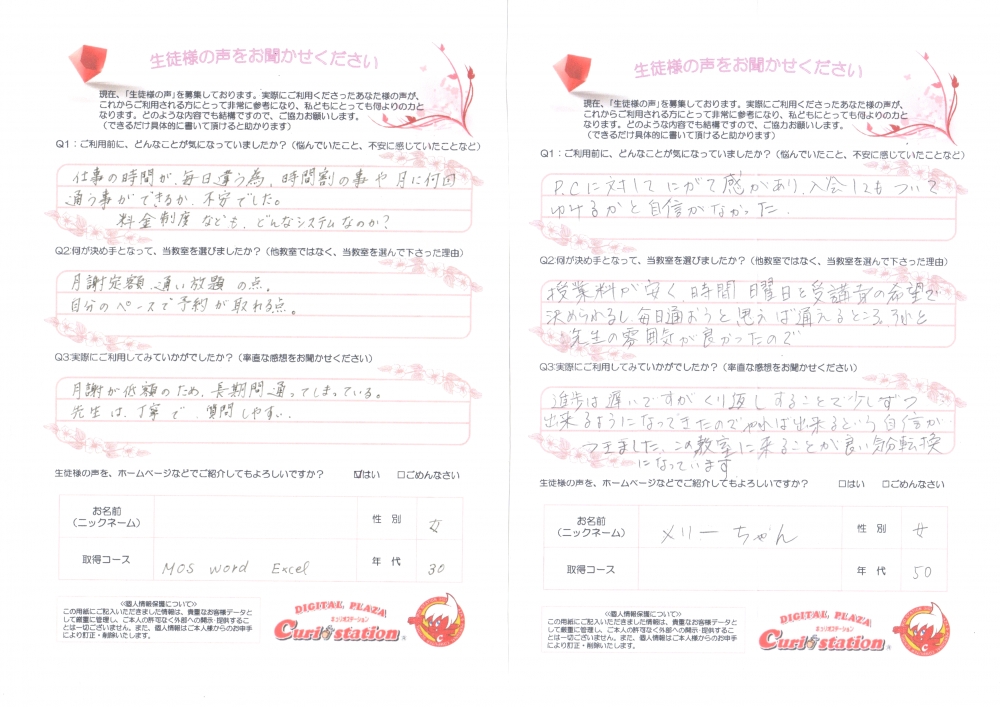 生徒様の声をお聞かせください
現在、「生徒様の声」を募集しております。実際にご利用くださったあなた様の声が、
これからご利用される方にとって非常に参考になり、私どもにとっても何よりの力と
なります。どのような内容でも結構ですので、ご協力お願いします。
（できるだけ具体的に書いて頂けると助かります）
Q1：ご利用前に、どんなことが気になっていましたか？（悩んでいたこと、不安に感じていたことなど）
仕事の時間が、毎日違う為、時間割の事や月に何回
通う事ができるか、不安でした。
料金制度なども、どんなシステムなのか？
Q2:何が決め手となって、当教室を選びましたか？（他教室ではなく、当教室を選んで下さった理由）
月謝定額、通い放題の点。
自分のペースで予約が取れる点。
Q3:実際にご利用してみていかがでしたか？（率直な感想をお聞かせください）
月謝が低額のため、長期間通ってしまっている。
先生は、丁寧で、質問しやすい。
生徒様の声を、ホームページなどでご紹介してもよろしいですか？ ☑はい □ごめんなさい
お名前
（ニックネーム）
性 別 女
取得コース MOS word Excel 年 代 30
≪個人情報保護について≫
この用紙にご記入いただきました情報は、貴重なお客様データと
して厳重に管理し、ご本人の許可なく外部への開示・提供するこ
とは一切ございません。また、個人情報はご本人様からのお申手
により訂正・削除いたします。
DIGITAL PLAZA
キュリオステーション
Curio station
生徒様の声をお聞かせください
現在、「生徒様の声」を募集しております。実際にご利用くださったあなた様の声が、
これからご利用される方にとって非常に参考になり、私どもにとっても何よりの力と
なります。どのような内容でも結構ですので、ご協力お願いします。
（できるだけ具体的に書いて頂けると助かります）
Q1：ご利用前に、どんなことが気になっていましたか？（悩んでいたこと、不安に感じていたことなど）
P.Cに対してにがて感があり、入会してもついて
ゆけるかと自信がなかった.
Q2:何が決め手となって、当教室を選びましたか？（他教室ではなく、当教室を選んで下さった理由）
授業料が安く、時間、曜日と受講者の希望で
決められるし、毎日通おうと思えば通えるところ、すかと
先生の雰囲気が良かったので
Q3:実際にご利用してみていかがでしたか？（率直な感想をお聞かせください）
進歩は遅いですがくり返しすることで少しずつ
出来るようになってきたのでやれば出来るという自信が
つきました、この教室に来ることが良い気分転換
になっています
生徒様の声を、ホームページなどでご紹介してもよろしいですか？ □はい □ごめんなさい
お名前
（ニックネーム）
メリーちゃん 性 別 女
取得コース 年 代 50
≪個人情報保護について≫
この用紙にご記入いただきました情報は、貴重なお客様データと
して厳重に管理し、ご本人の許可なく外部への開示・提供するこ
とは一切ございません。また、個人情報はご本人様からのお申手
により訂正・削除いたします。
DIGITAL PLAZA
キュリオステーション
Curio station